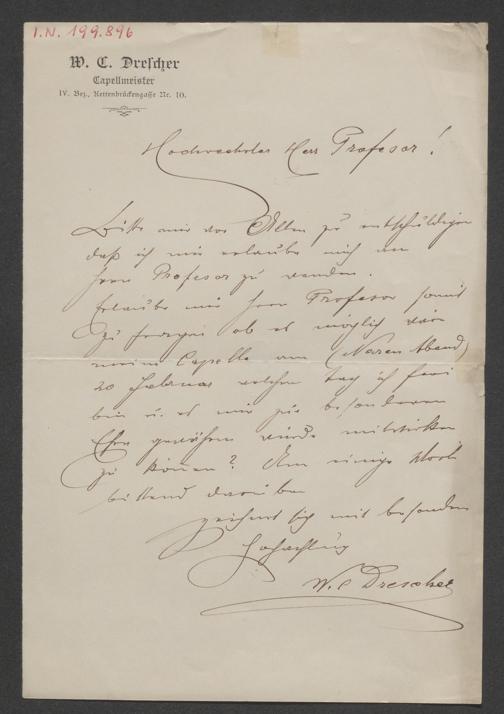 I.N. 199.896
W. C. Drescher
Capellmeister
IV. Bez., Kettenbrückengasse Nr. 10.
Hochverehrter Herr Profesor!
Bitte mir vor Allem zu entschuldigen
daß ich mir erlaube mich an
Herrn Profesor zu wenden.
Erlaube mir Herr Profesor somit
zu fragen ob es möglich wär
meine Capelle am (Narren Abend)
20 Februar welchen Tag ich frei
bin u. es mir zur besonderen
Ehre gewähren würde mitwirken
zu können? Um einige Worte
bittend darüber
zeichnet sich mit besonderer
Hochachtung
W. C Drescher